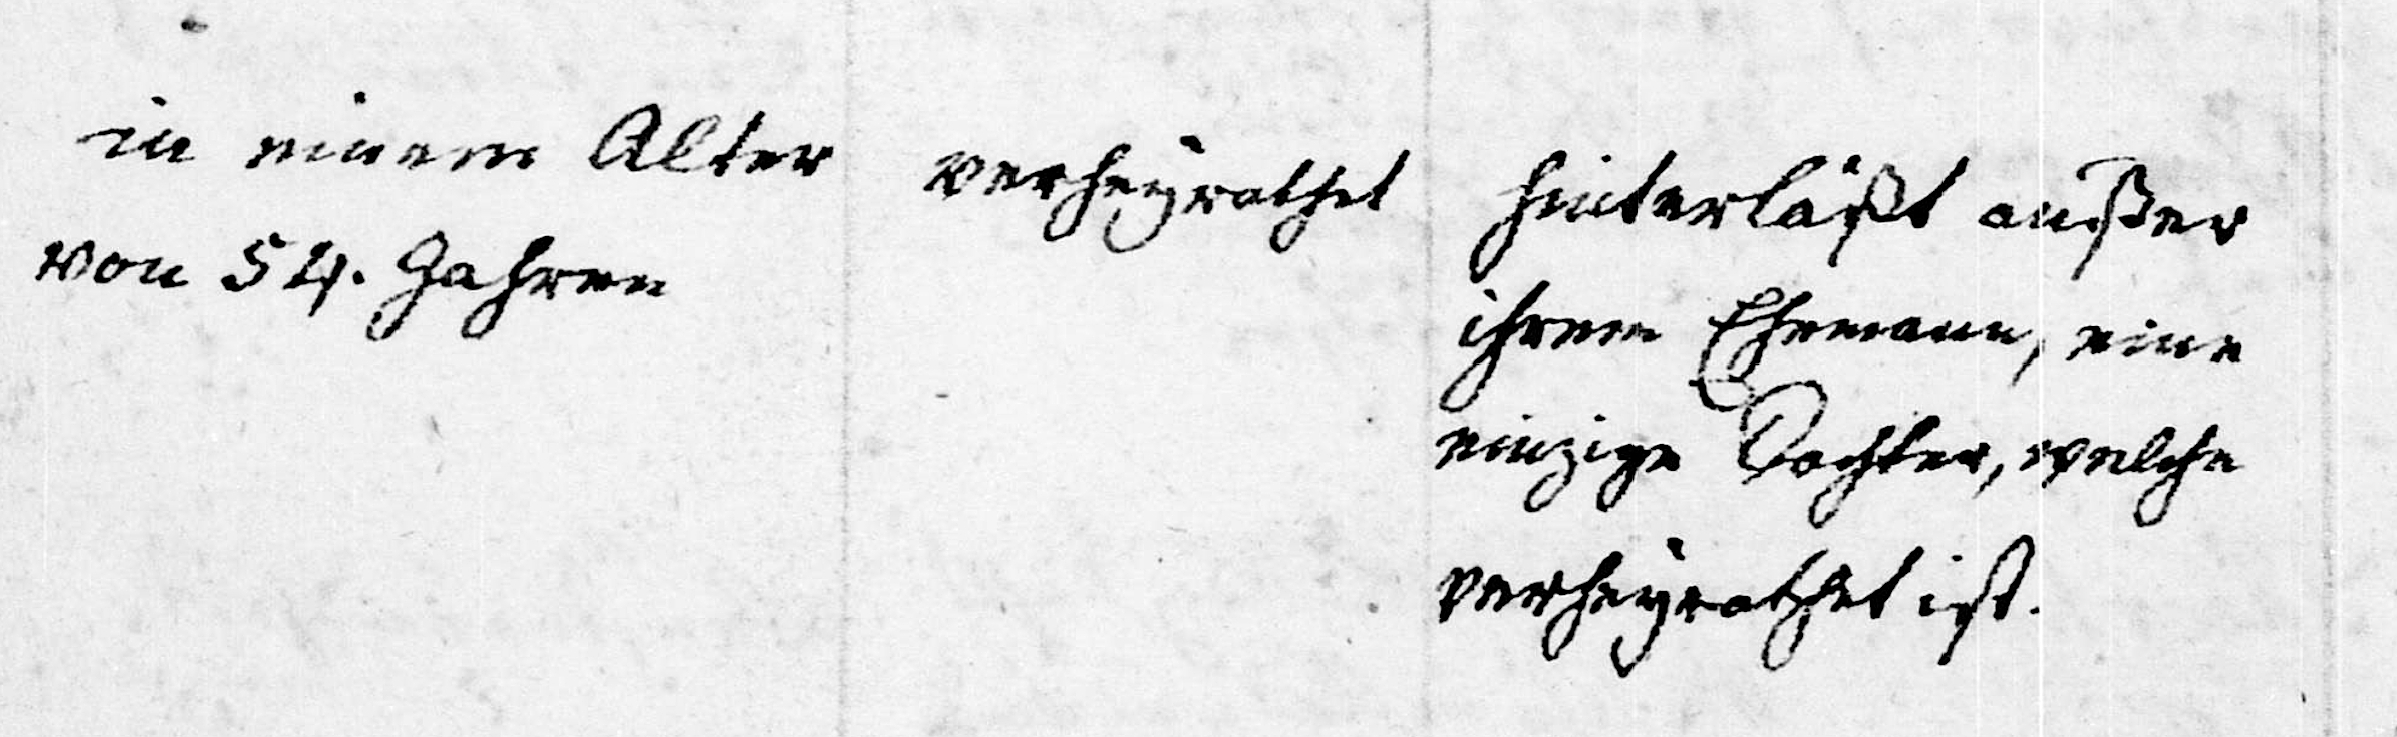 in einem Alter
von 54. Jahren
verheyrathet
hinterläßt außer
ihrem Ehemann, eine
einzige Tochter, welche
verheyrathet ist.